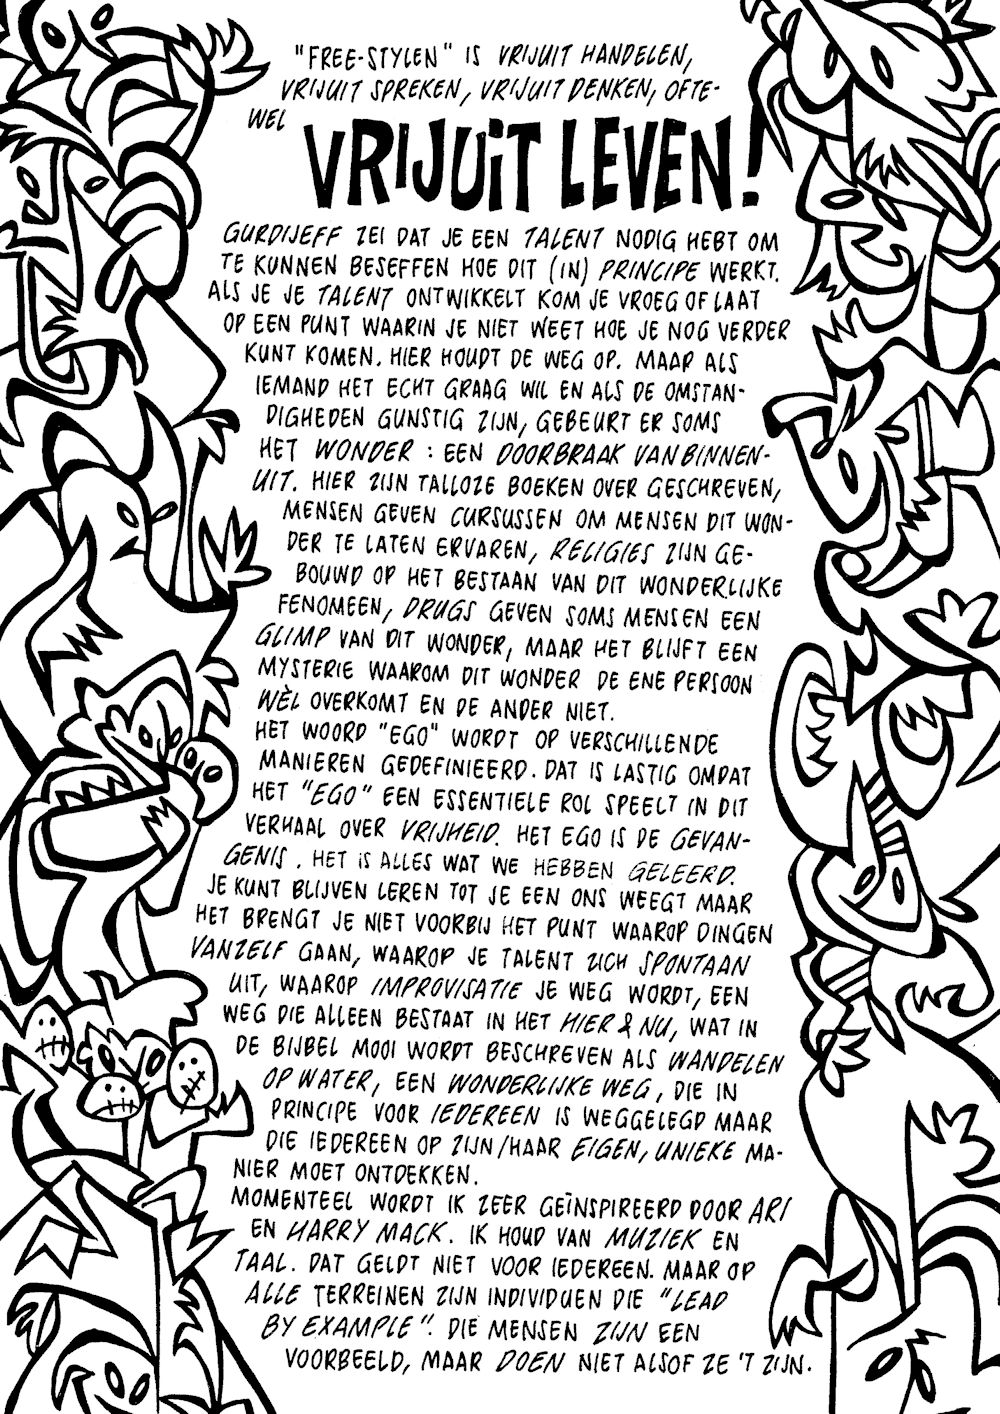 "FREE-STYLEN" IS VRIJUIT HANDELEN,
VRIJUIT SPREKEN, VRIJUIT DENKEN, OFTE-
WEL
VRIJUIT LEVEN!
GURDIJEFF ZEI DAT JE EEN TALENT NODIG HEBT OM
TE KUNNEN BESEFFEN HOE DIT (IN) PRINCIPE WERKT.
ALS JE JE TALENT ONTWIKKELT KOM JE VROEG OF LAAT
OP EEN PUNT WAARIN JE NIET WEET HOE JE NOG VERDER
KUNT KOMEN. HIER HOUDT DE WEG OP. MAAR ALS
IEMAND HET ECHT GRAAG WIL EN ALS DE OMSTAN-
DIGHEDEN GUNSTIG ZIJN, GEBEURT ER SOMS
HET WONDER : EEN DOORBRAAK VAN BINNEN-
UIT. HIER ZIJN TALLOZE BOEKEN OVER GESCHREVEN,
MENSEN GEVEN CURSUSSEN OM MENSEN DIT WON-
DER TE LATEN ERVAREN, RELIGIES ZIJN GE-
BOUWD OP HET BESTAAN VAN DIT WONDERLIJKE
FENOMEEN, DRUGS GEVEN SOMS MENSEN EEN
GLIMP VAN DIT WONDER, MAAR HET BLIJFT EEN
MYSTERIE WAAROM DIT WONDER DE ENE PERSOON
WÈL OVERKOMT EN DE ANDER NIET.
HET WOORD "EGO" WORDT OP VERSCHILLENDE
MANIEREN GEDEFINIEERD. DAT IS LASTIG OMDAT
HET "EGO" EEN ESSENTIELE ROL SPEELT IN DIT
VERHAAL OVER VRIJHEID. HET EGO IS DE GEVAN-
GENIS. HET IS ALLES WAT WE HEBBEN GELEERD.
JE KUNT BLIJVEN LEREN TOT JE EEN ONS WEEGT MAAR
HET BRENGT JE NIET VOORBIJ HET PUNT WAAROP DINGEN
VANZELF GAAN, WAAROP JE TALENT ZICH SPONTAAN
UIT, WAAROP IMPROVISATIE JE WEG WORDT, EEN
WEG DIE ALLEEN BESTAAT IN HET HIER & NU, WAT IN
DE BIJBEL MOOI WORDT BESCHREVEN ALS WANDELEN
OP WATER, EEN WONDERLIJKE WEG, DIE IN
PRINCIPE VOOR IEDEREEN IS WEGGELEGD MAAR
DIE IEDEREEN OP ZIJN/HAAR EIGEN, UNIEKE MA-
NIER MOET ONTDEKKEN.
MOMENTEEL WORDT IK ZEER GEÏNSPIREERD DOOR ARI
EN HARRY MACK. IK HOUD VAN MUZIEK EN
TAAL. DAT GELDT NIET VOOR IEDEREEN. MAAR OP
ALLE TERREINEN ZIJN INDIVIDUEN DIE "LEAD
BY EXAMPLE". DIE MENSEN ZIJN EEN
VOORBEELD, MAAR DOEN NIET ALSOF ZE 'T ZIJN.